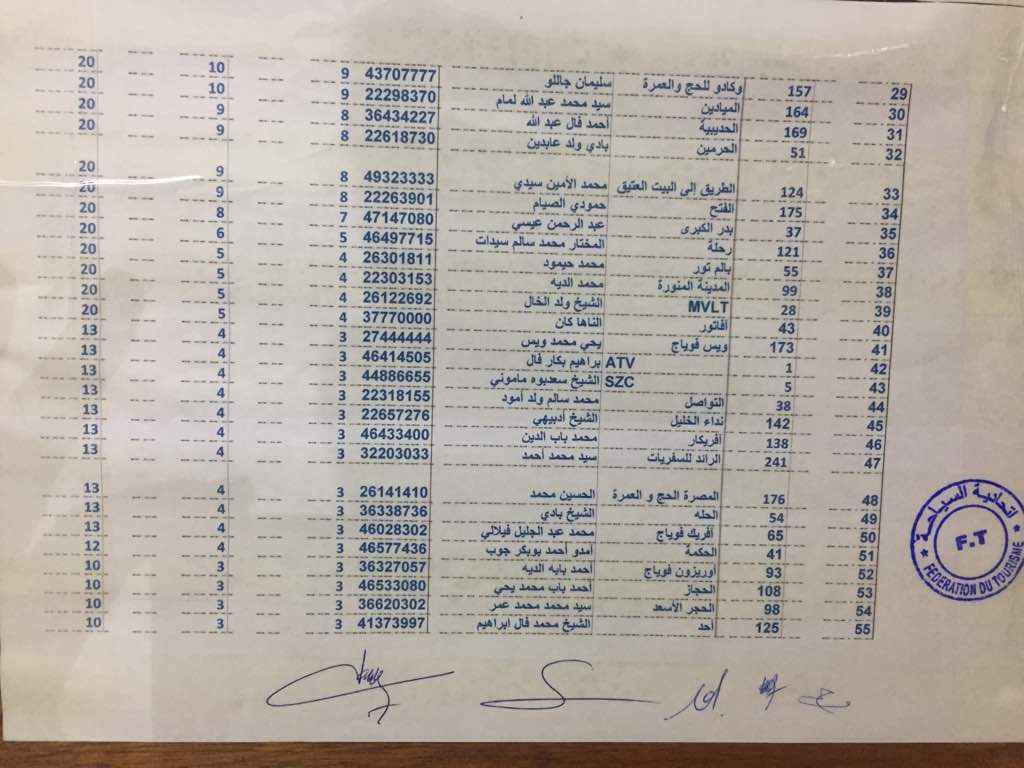 29 157 وكادو للحج والعمرة سليمان جاللو 43707777 9 10 20
30 164 الميادين سيد محمد عبد الله لمام 22298370 9 10 20
31 169 الحديبية أحمد فال عبد الله 36434227 8 9 20
32 51 الحرمين بادي ولد عابدين 22618730 8 9 20
33 124 الطريق إلى البيت العتيق محمد الأمين سيدي 49323333 8 9 20
34 175 الفتح حمودي الصيام 22263901 8 9 20
35 37 بدر الكبرى عبد الرحمن عيسي 47147080 7 8 20
36 121 رحلة المختار محمد سالم سيدات 46497715 5 6 20
37 55 بالم تور محمد حيمود 26301811 4 5 20
38 99 المدينة المنورة محمد الديه 22303153 4 5 20
39 28 MVLT الشيخ ولد الخال 26122692 4 5 20
40 43 أفاتور الناها كان 37770000 4 5 20
41 173 ويس فوياج يحي محمد ويس 27444444 3 4 13
42 1 ATV براهيم بكار فال 46414505 3 4 13
43 5 SZC الشيخ سعدبوه ماموني 44886655 3 4 13
44 38 التواصل محمد سالم ولد أمود 22318155 3 4 13
45 142 نداء الخليل الشيخ أدبيهي 22657276 3 4 13
46 138 أفريكار محمد باب الدين 46433400 3 4 13
47 241 الرائد للسفريات سيد محمد أحمد 32203033 3 4 13
48 176 المصرة الحج و العمرة الحسين محمد 26141410 3 4 13
49 54 الحله الشيخ بادي 36338736 3 4 13
50 65 أفريك فوياج محمد عبد الجليل فيلالي 46028302 3 4 13
51 41 الحكمة أمدو أحمد بوبكر جوب 46577436 3 4 12
52 93 أوريزون فوياج أحمد بابه الديه 36327057 3 3 10
53 108 الحجاز أحمد باب محمد يحي 46533080 3 3 10
54 98 الحجر الأسعد سيد محمد محمد عمر 36620302 3 3 10
55 125 أحد الشيخ محمد فال ابراهيم 41373997 3 3 10
اتحادية السياحة
F.T
FEDERATION DU TOURISME